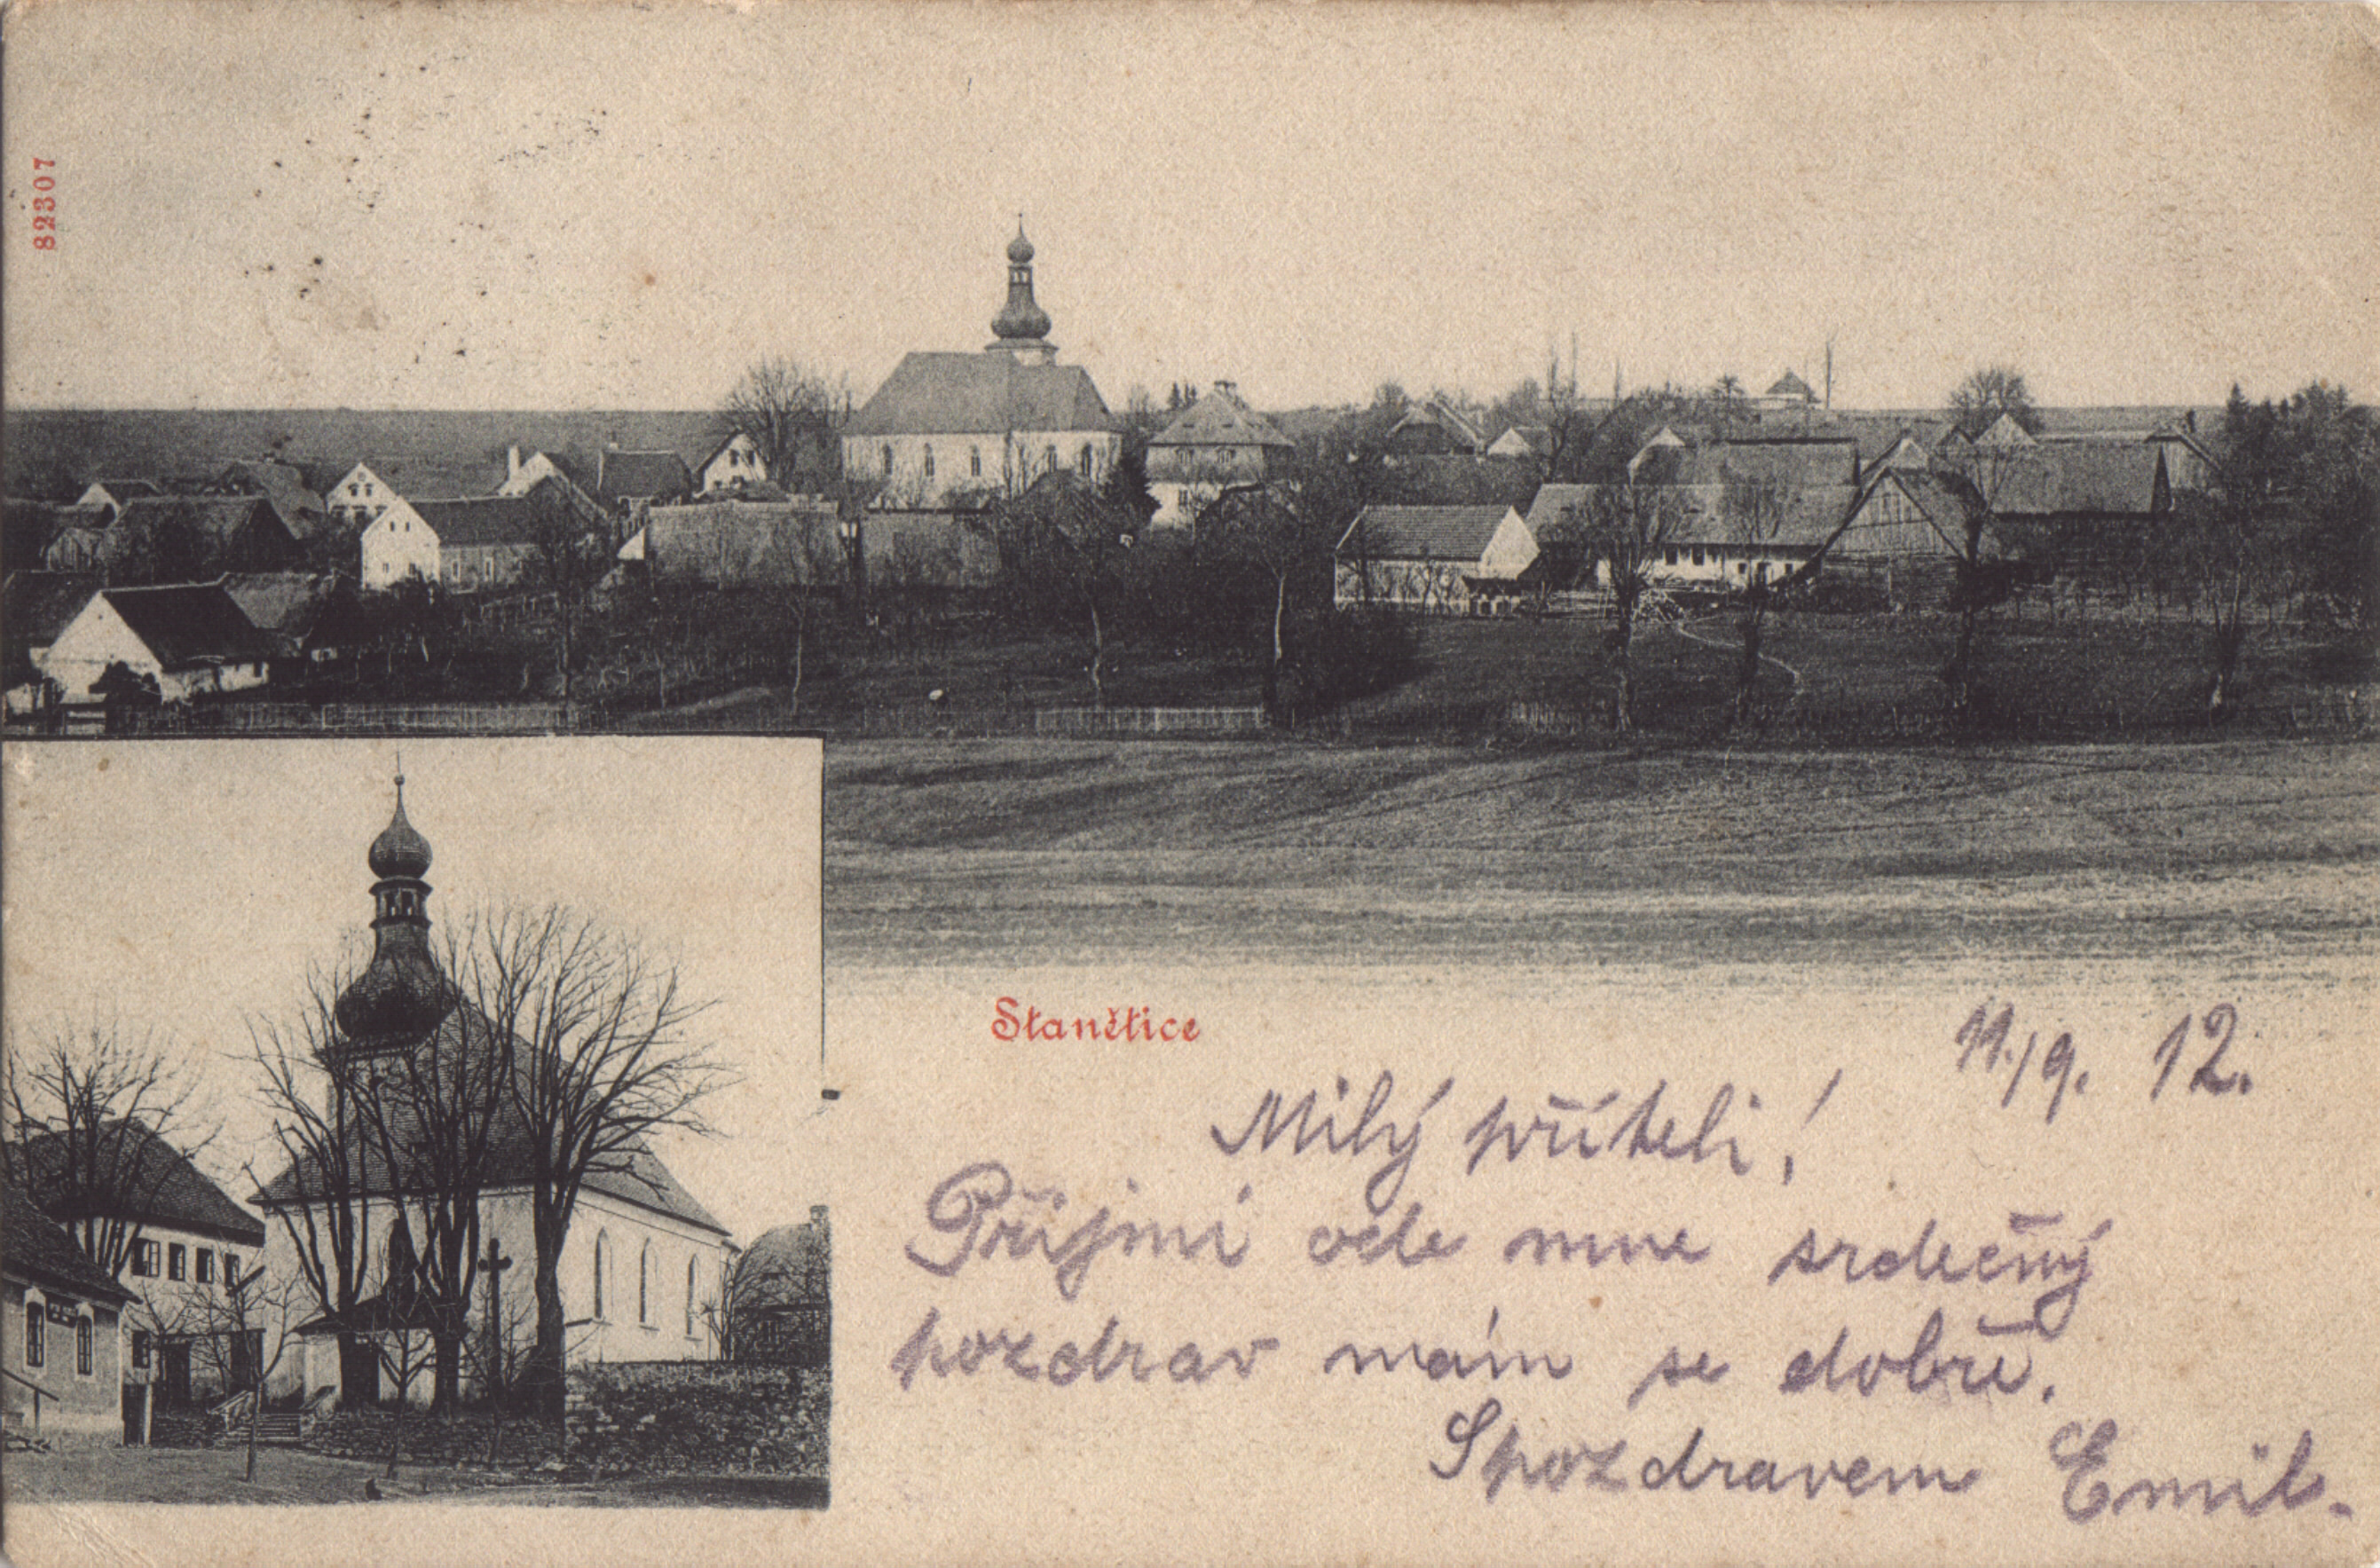 82307
Stanětice
11./9. 12.
Milý příteli!
Přijmi ode mne srdečný
pozdrav mám se dobře.
S pozdravem Emil.